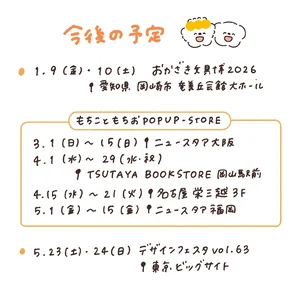 今後の予定
1.9(金)・10(土) おかざき文具博2026
愛知県 岡崎市 竜美丘会館大ホール
もちこともちおPOPUP-STORE
3.1(日)〜15(日) ニュースタア大阪
4.1(水)〜29(水・祝)
TSUTAYA BOOKSTORE 岡山駅前
4.15(水)〜21(火) 名古屋栄三越3F
5.1(金)〜15(金) ニュースタア福岡
5.23(土)・24(日) デザインフェスタvol.63
東京ビッグサイト